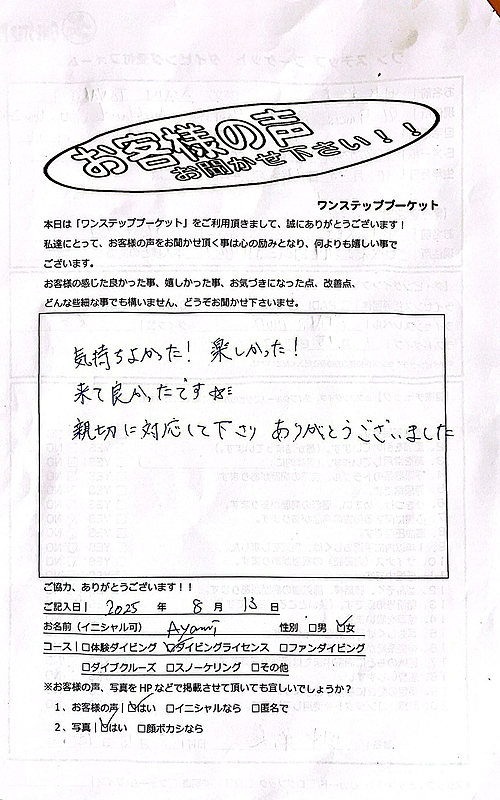 お客様の声
お聞かせ下さい！！
ワンステッププーケット
本日は「ワンステッププーケット」をご利用頂きまして、誠にありがとうございます！
私達にとって、お客様の声をお聞かせ頂く事は心の励みとなり、何よりも嬉しい事で
ございます。
お客様の感じた良かった事、嬉しかった事、お気づきになった点、改善点、
どんな些細な事でも構いません、どうぞお聞かせ下さいませ。
気持ちよかった！ 楽しかった！
来て良かったです☆ミ
親切に対応して下さり ありがとうございました
ご協力、ありがとうございます！！
ご記入日| 2025 年 8 月 13 日
お名前（イニシャル可） Ayami 性別 □男 ☑女
コース|□体験ダイビング ☑ダイビングライセンス □ファンダイビング
□ダイブクルーズ □スノーケリング □その他
※お客様の声、写真をHPなどで掲載させて頂いても宜しいでしょうか？
1、お客様の声|☑はい □イニシャルなら □匿名で
2、写真|☑はい □顔ボカシなら